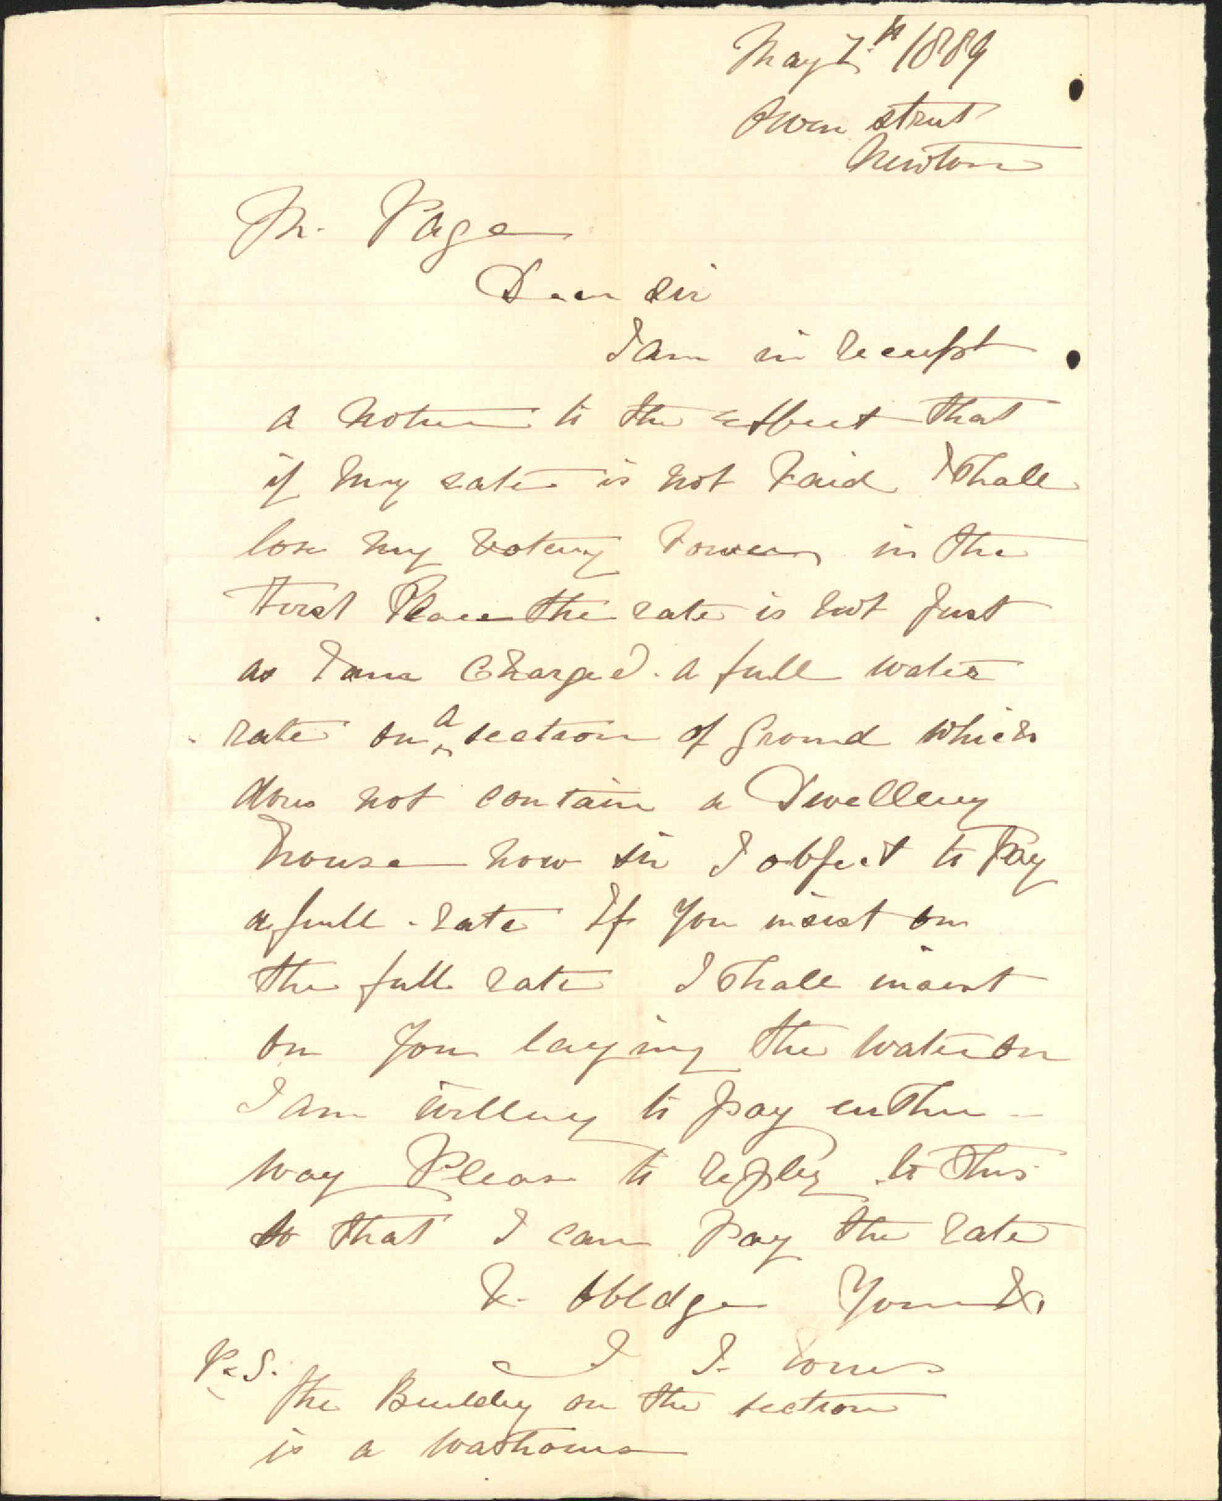 May 7th 1889
Owen street
Newton
Mr. Page
Dear Sir
I am in receipt
a notice to the effect that
if my rate is not Paid I Shall
lose my Voteing Power in the
First Place the rate is not Just
as I am Charged a full water
rate on a section of Ground which
does not contain a Dwelling
house now sir I object to Pay
a full rate If you insist on
the full rate I Shall insist
on you laying the water on
I am willing to pay either
way Please to reply to this
so that I can Pay the rate
& obledge Yours &.
J. Jones
P.S.
the Building on the section
is a washouse